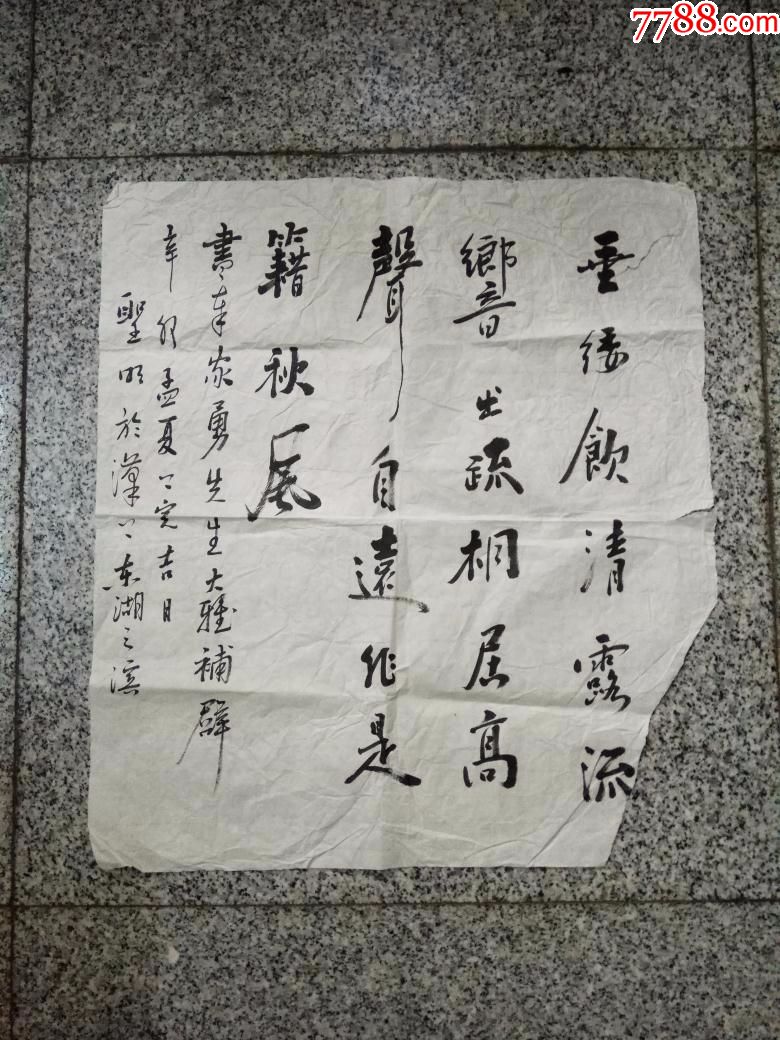 7788.com
垂緌飲清露流
響出疏桐居高
聲自遠非是
籍秋風
書奉家勇先生大雅補壁
辛卯孟夏吉日
聖明於漢上东湖之滨